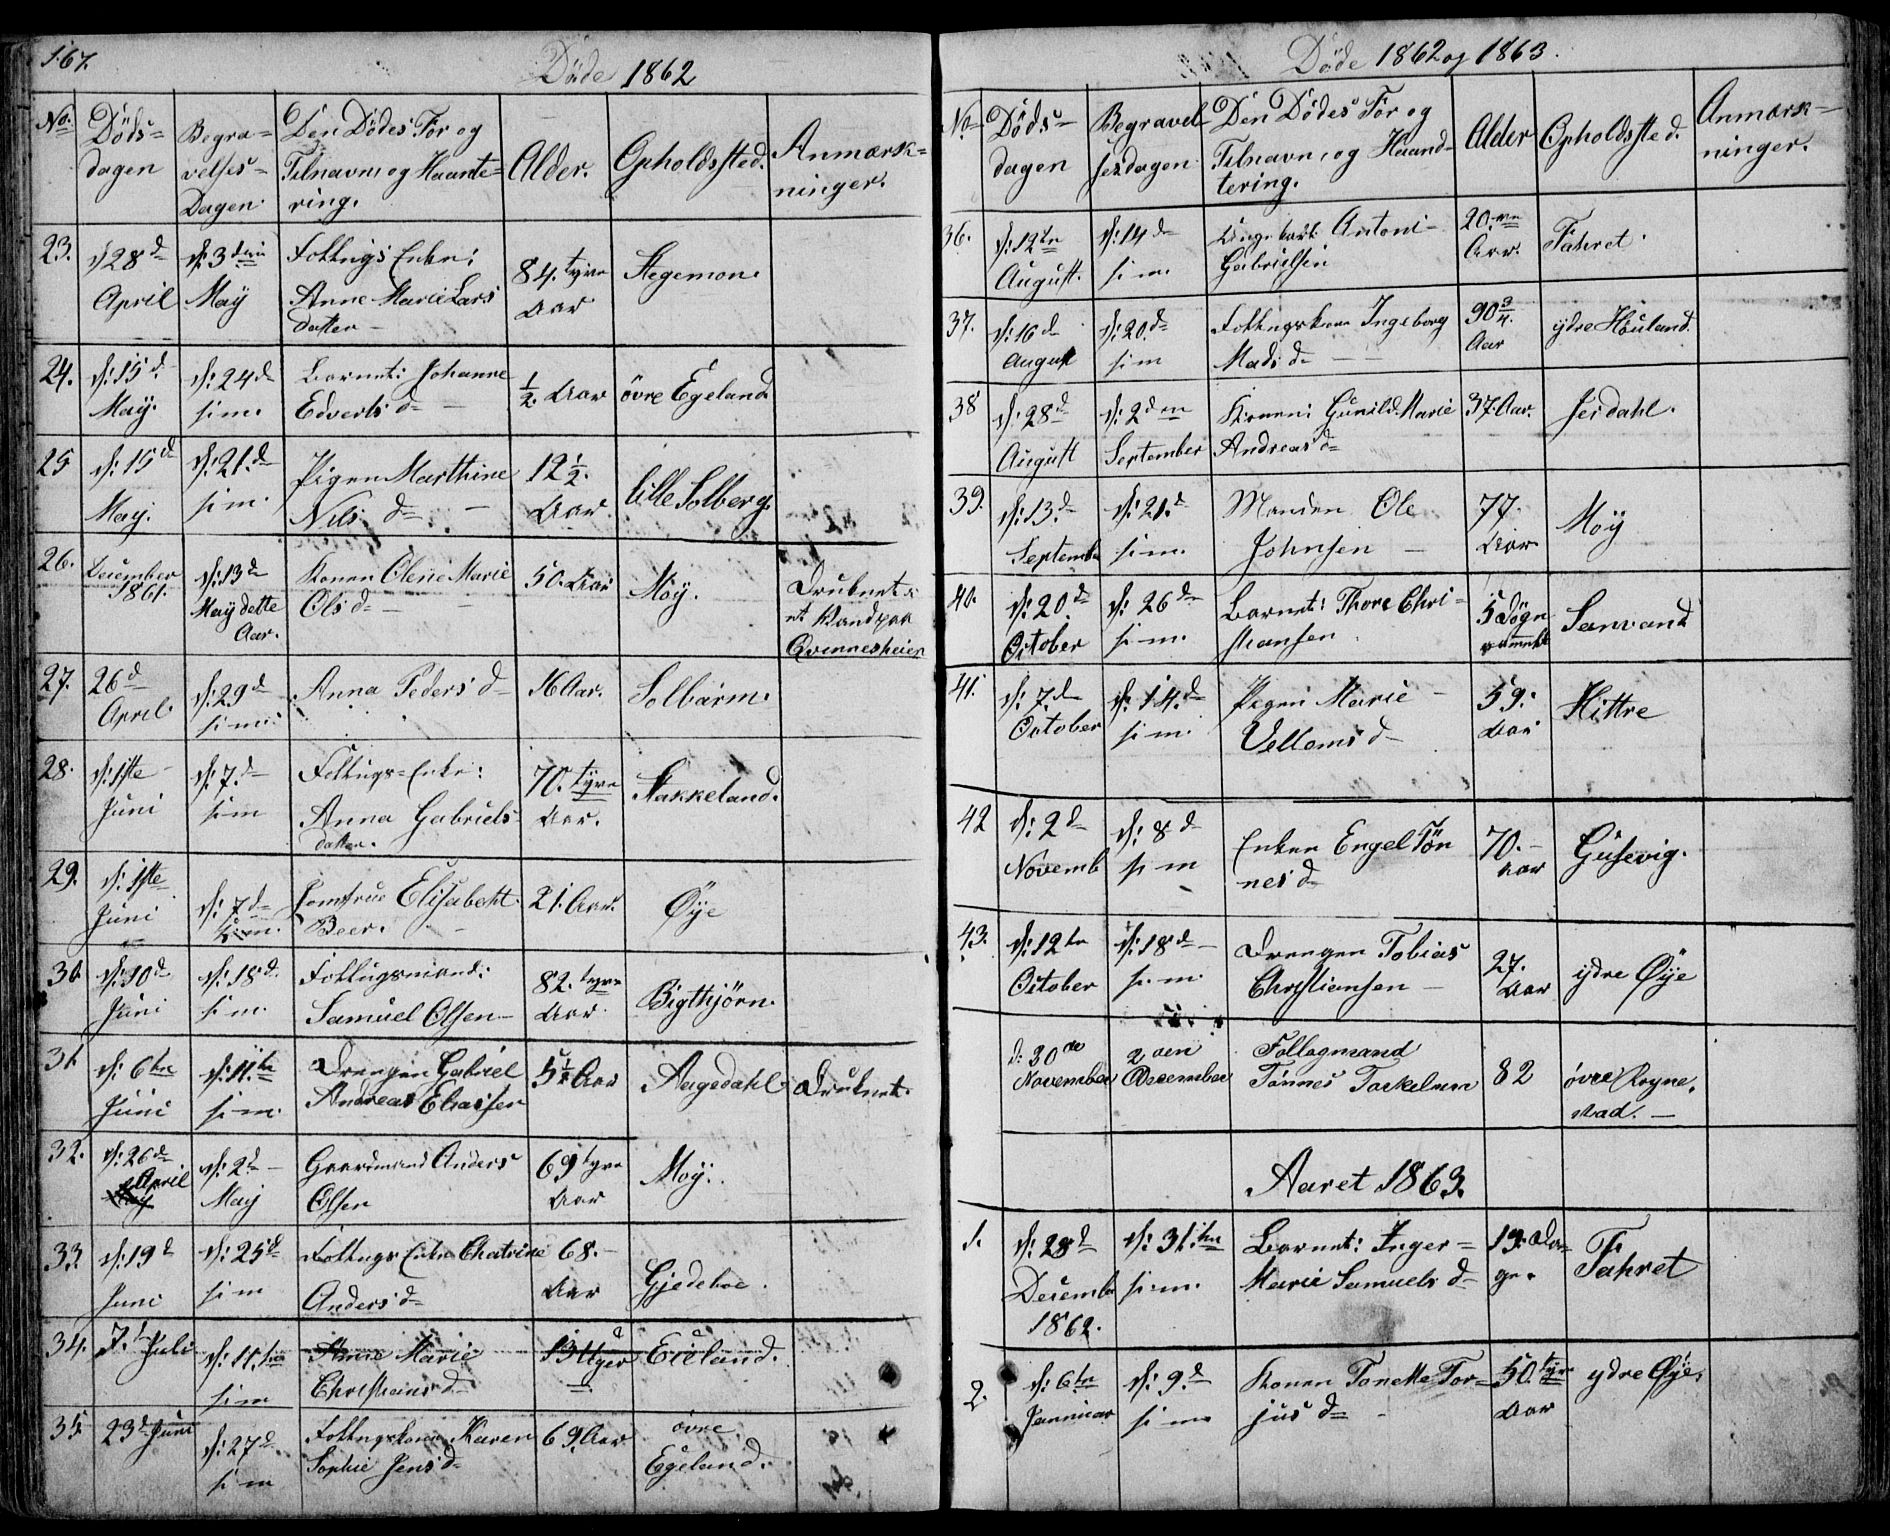 167.
Döde 1862
No. Döds= dagen Begra= velses= Dagen Den Dödes For og Tilnavn, og Haante= ring. Alder. Opholdssted. Anmærk= ninger.
23. d. 28d April d: 3die Maÿ Folkugs Enke: Anne Marie Lars datter – 84. tyve Aar Stegemon.
24. d: 15d Maÿ. d: 24d s: m. Barnet: Johanne Edverts d– 1/2. Aar övre Egeland
25 d: 15d Maÿ. d: 21.d s: m. Pigen Marthine Nils d– 12 1/2. Aar lille Solberg.
26. December 1861. d: 13d Maÿ dette Aar. Konen Olene Marie Ols d– 50. Aar Möÿ. Druknet i et Vand paa Qvinnesheien
27. 26d April d: 29d s: m. Anna Peders d– 16 Aar. Solbärm.
28. d: 1ste Juni d: 7.d s: m Folkugs=Enke: Anna Gabriels datter. 70. tyve Aar. Stakkeland.
29. d: 1ste Juni d: 7d s: m. Jomfrue Elisabeth Beer. 21. Aar. Øÿe
30 d: 10d Juni d: 18d. s: m. Folkugsmand: Samuel Olsen– 82. tyve Aar. Bigthjörn.
31 d: 6te Juni d: 11.te s: m. Drengen Gabriel Andreas Eliassen 5 1/2 Aar Aagedahl Druknet.
32. d: 26d April d: 2d– Maÿ Gaardmand Anders Olsen 69 tyve Aar Moÿ.
33. d: 19d Juni d: 25d s: m Folkugs Enke Chatrine Anders d– 68.– Aar Gjedeboe.
34. 7.d Juli d: 11.te s: m Anne Marie Christians d– 13 Uger Eieland.
35. 23d Juni d: 27d s: m Folkugskone Karen Sophie Jens d– 69. Aar övre Egeland.
Döde 1862 og 1863.
No. Döds= dagen Begravel= sesdagen Den Dödes For og Tilnavn, og Haand= tering. Alder Opholdssted. Anmærk= ninger.
36. d: 12te August. d: 14d s: m. Ungekarl: Antoni Gabrielsen 20.ve Aar. Fahret.
37. d: 16d August d: 20.d s: m Folkugskone Ingeborg Mads d– 90 3/4. Aar ydre Houland.
38 d: 28d August d: 2den September Konen: Gunild Marie Andreas d– 37. Aar. Jerdahl.
39. d: 13.d Septemb d: 21.d s: m. Manden Ole Johnsen – 77. Aar Möÿ
40. d: 20d October d: 26d s: m. Barnet: Thore Chri= stiansen 5 Dögn Sanvand
41. d: 7.d October d: 14.d s: m. Pigen Marie Vellems d– 59. Aar Hittre
42 d: 2d Novemb d: 8d s: m Enken Engel Tön nes d– 70.– Aar Güsevig.
43. d: 12te October d: 18d– s: m. Drengen Tobias Christiansen – 27. Aar ydre Øÿe
d: 30de November 2den December Follagmand Tönnes Torkelsen 82 övre Rogne, stad. –
Aaret 1863.
1. d: 28d Decemb 1862. d: 31.te s: m. Barnet: Inger= Marie Samuels d– 19. Da= ge. Fahret
2. d: 6te Januar d: 9.d s: m. Konen Tonette Tor= jus d– 50. tyve Aar ydre Øÿe.